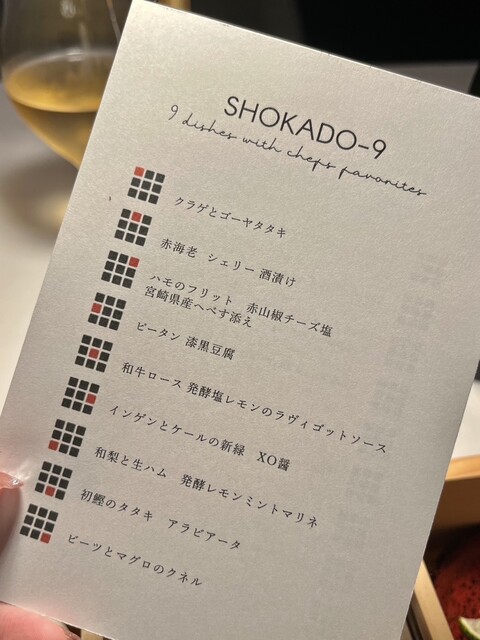 SHOKADO-9
9 dishes with chefs favorites
クラゲとゴーヤタタキ
赤海老 シェリー酒漬け
ハモのフリット 赤山椒チーズ塩
宮崎県産へべす添え
ピータン 漆黒豆腐
和牛ロース 発酵塩レモンのラヴィゴットソース
インゲンとケールの新緑 XO醤
和梨と生ハム 発酵レモンミントマリネ
初鰹のタタキ アラビアータ
ビーツとマグロのクネル